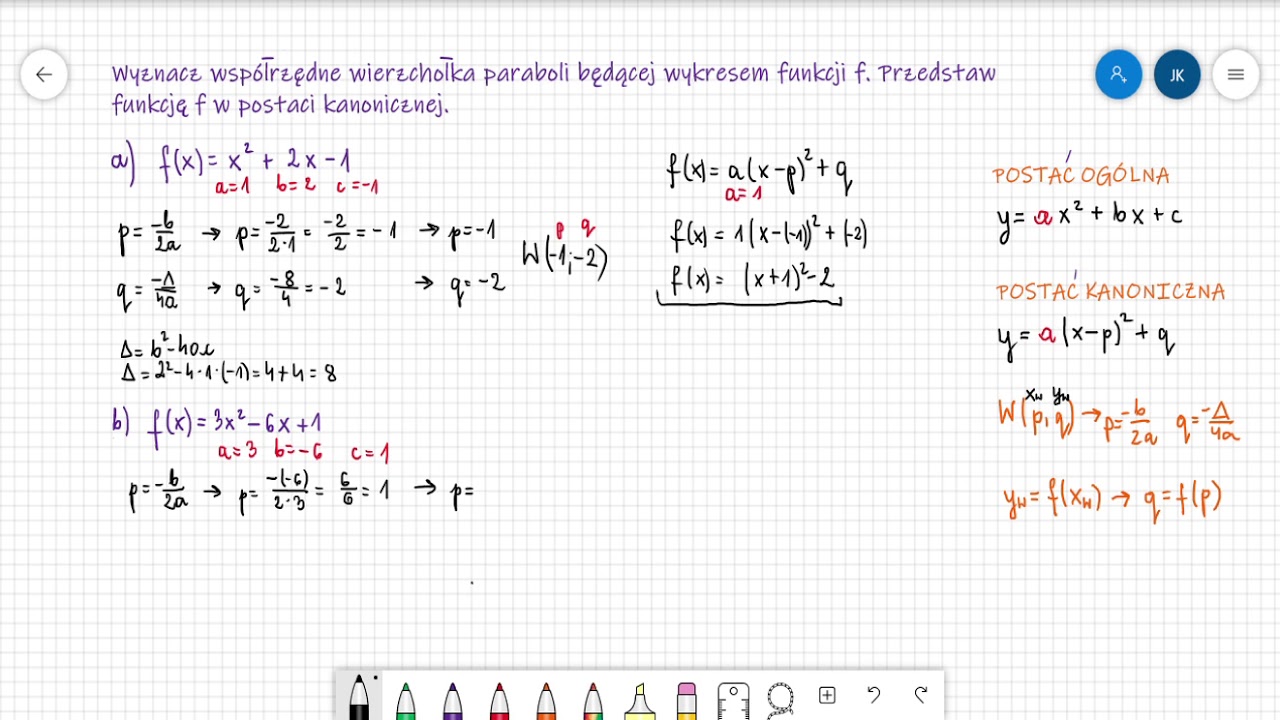 Wyznacz współrzędne wierzchołka paraboli będącej wykresem funkcji f. Przedstaw
funkcję f w postaci kanonicznej.
JK
a) f(x) = x² + 2x - 1
a=1 b=2 c=-1
p = -b/2a → p = -2/2·1 = -2/2 = -1 → p = -1
q = -Δ/4a → q = -8/4 = -2 → q = -2
p q
W(-1;-2)
Δ = b² - 4ac
Δ = 2² - 4·1·(-1) = 4 + 4 = 8
f(x) = a(x-p)² + q
a=1
f(x) = 1(x-(-1))² + (-2)
f(x) = (x+1)² - 2
b) f(x) = 3x² - 6x + 1
a=3 b=-6 c=1
p = -b/2a → p = -(-6)/2·3 = 6/6 = 1 → p =
POSTAĆ OGÓLNA
y = ax² + bx + c
POSTAĆ KANONICZNA
y = a(x-p)² + q
xw yw
W(p,q) → p = -b/2a q = -Δ/4a
yw = f(xw) → q = f(p)